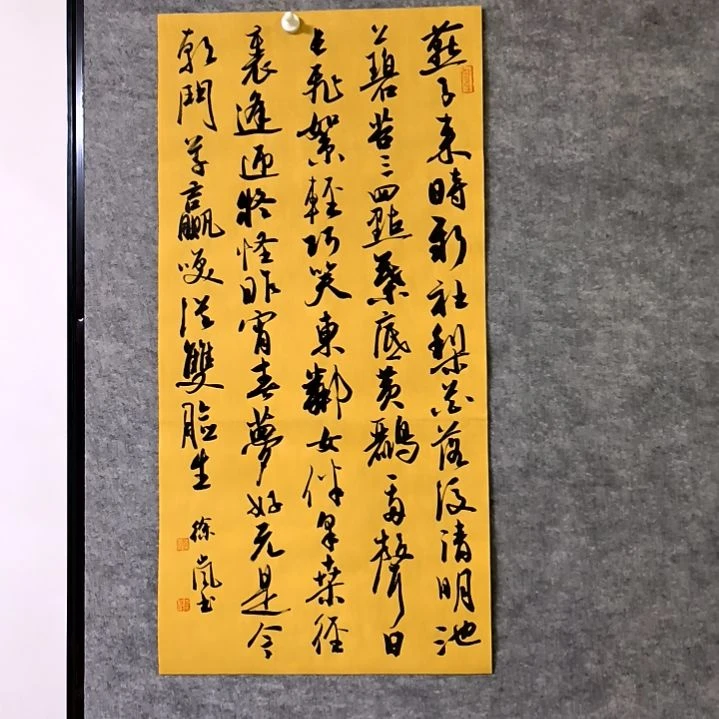 燕子来時新社梨花落後清明池
上碧苔三四點葉底黄鸝一兩聲日
長飛絮輕巧笑東鄰女伴采桑徑
裏逢迎疑怪昨宵春夢好元是今
朝鬥草贏笑從雙臉生
徐嵐书